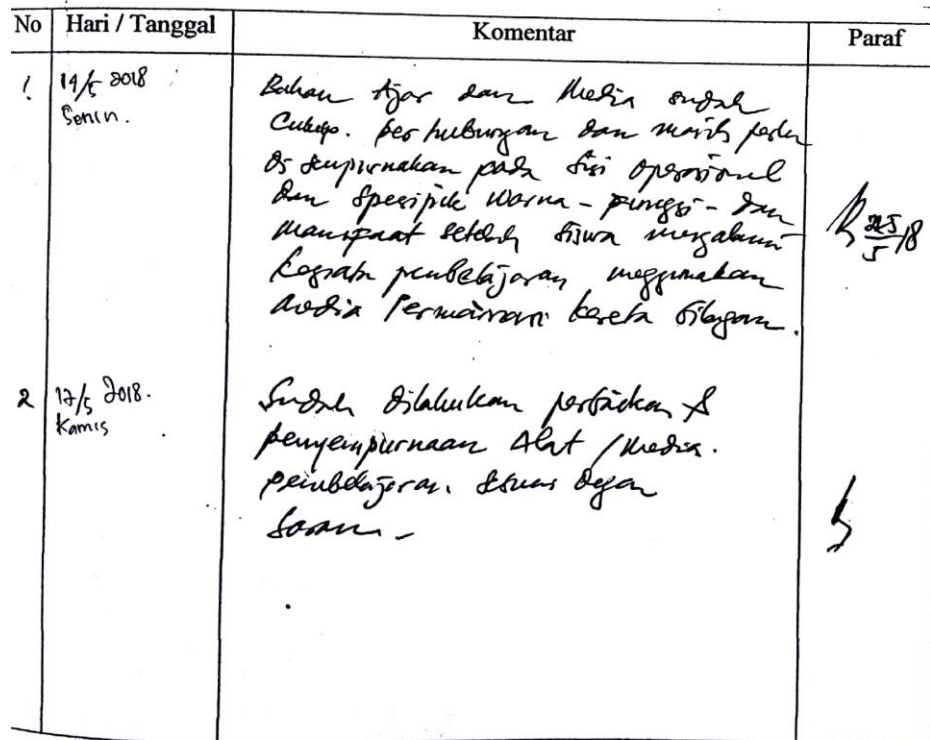 No Hari / Tanggal Komentar Paraf
1. 14/5 2018
Senin.
Bahan Ajar dan Media sudah
Cukup. perhubungan dan masih perlu
di sempurnakan pada sisi operasional
dan spesipik warna - - dan
manspaat setelah siswa mengalami
kegiatan pembelajaran meggunakan
media Permainan kereta bilangan.
5/18
2 17/5 2018.
Kamis
Sudah dilakukan perbaikan &
penyempurnaan Alat / Media.
pembelajaran. sesuai degan
saran -